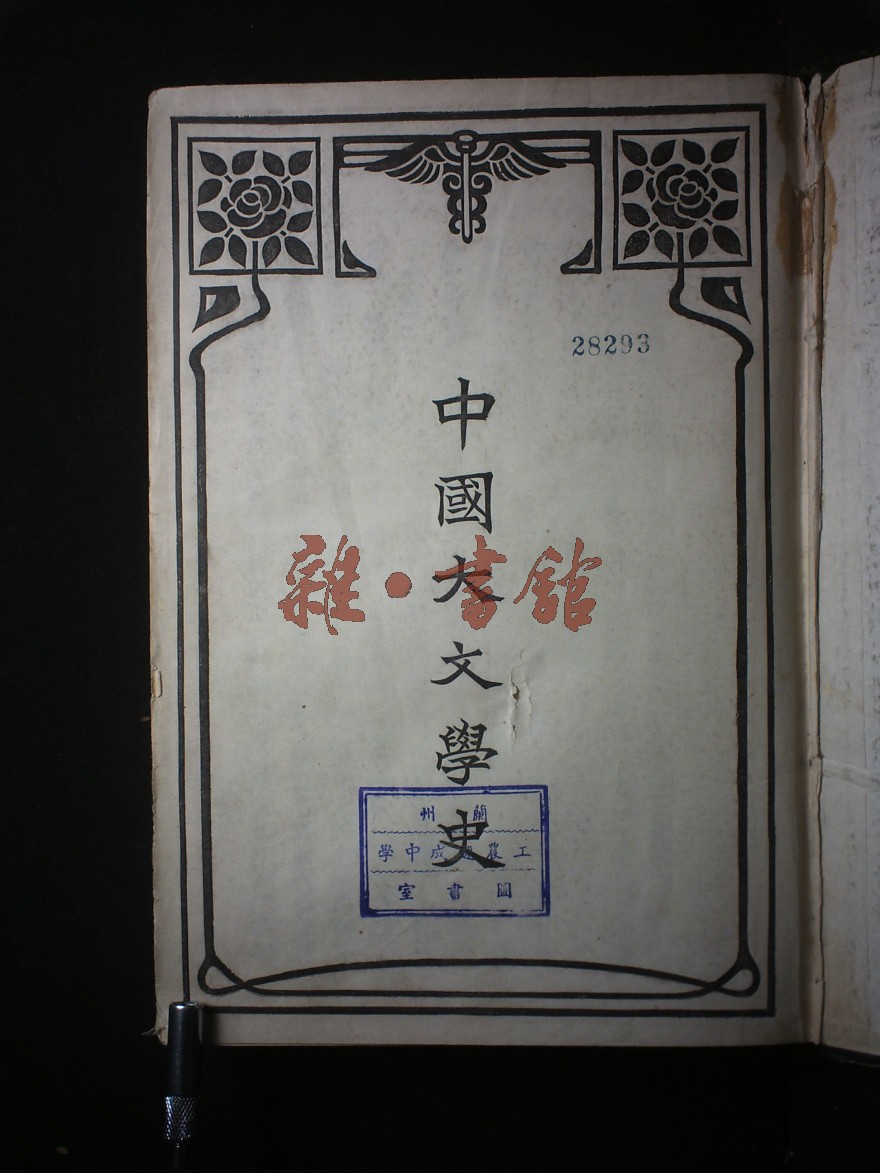 28293
中國大文學史
雜·書館
蘭州
工農速成中學
圖書室